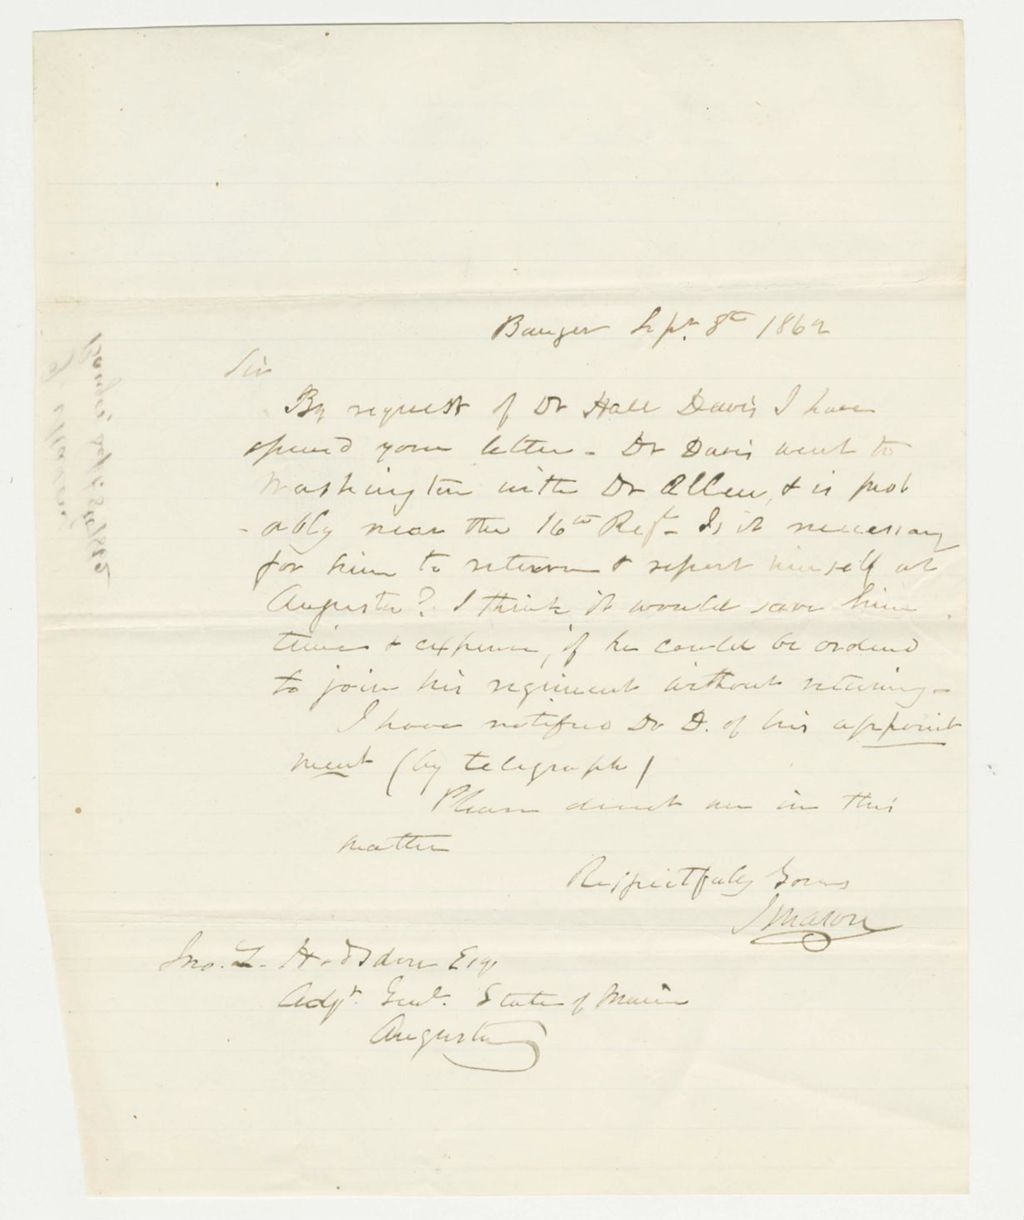 Bangor Sept. 8th 1862
Sir
By request of Dr Hall Davis I have
opened your letter - Dr Davis went to
Washington with Dr Allen, & is prob
-ably near the 16th Regt - Is it necessary
for him to return & report himself at
Augusta? I think it would save him
time & expense, if he could be ordered
to join his regiment without returning -
I have notified Dr D. of his appoint
ment (by telegraph)
Please direct me in this
matter
Respectfully Yours
J Mason
Jno. L. Hodsdon Esq
Adjt. Genl. State of Maine
Augusta